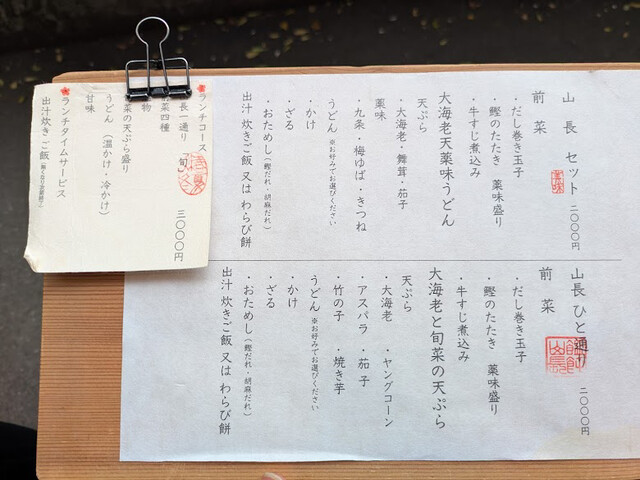 山長 セット 二〇〇〇円
前菜
・だし巻き玉子
・鰹のたたき 薬味盛り
・牛すじ煮込み
大海老天薬味うどん
天ぷら
・大海老・舞茸・茄子
薬味
・九条・梅ゆば・きつね
うどん ※お好みでお選びください
・かけ
・ざる
・おためし（鰹だれ・胡麻だれ）
出汁 炊きご飯 又は わらび餅
山長 ひと通り 二〇〇〇円
前菜
・だし巻き玉子
・鰹のたたき 薬味盛り
・牛すじ煮込み
大海老と旬菜の天ぷら
天ぷら
・大海老 ・ヤングコーン
・アスパラ ・茄子
・竹の子 ・焼き芋
うどん ※お好みでお選びください
・かけ
・ざる
・おためし（鰹だれ・胡麻だれ）
出汁 炊きご飯 又は わらび餅
ランチコース
長一通り 「旬」 三〇〇〇円
菜四種
物
菜の天ぷら盛り
うどん（温かけ・冷かけ）
甘味
ランチタイムサービス
出汁炊きご飯（無くなり次第終了）